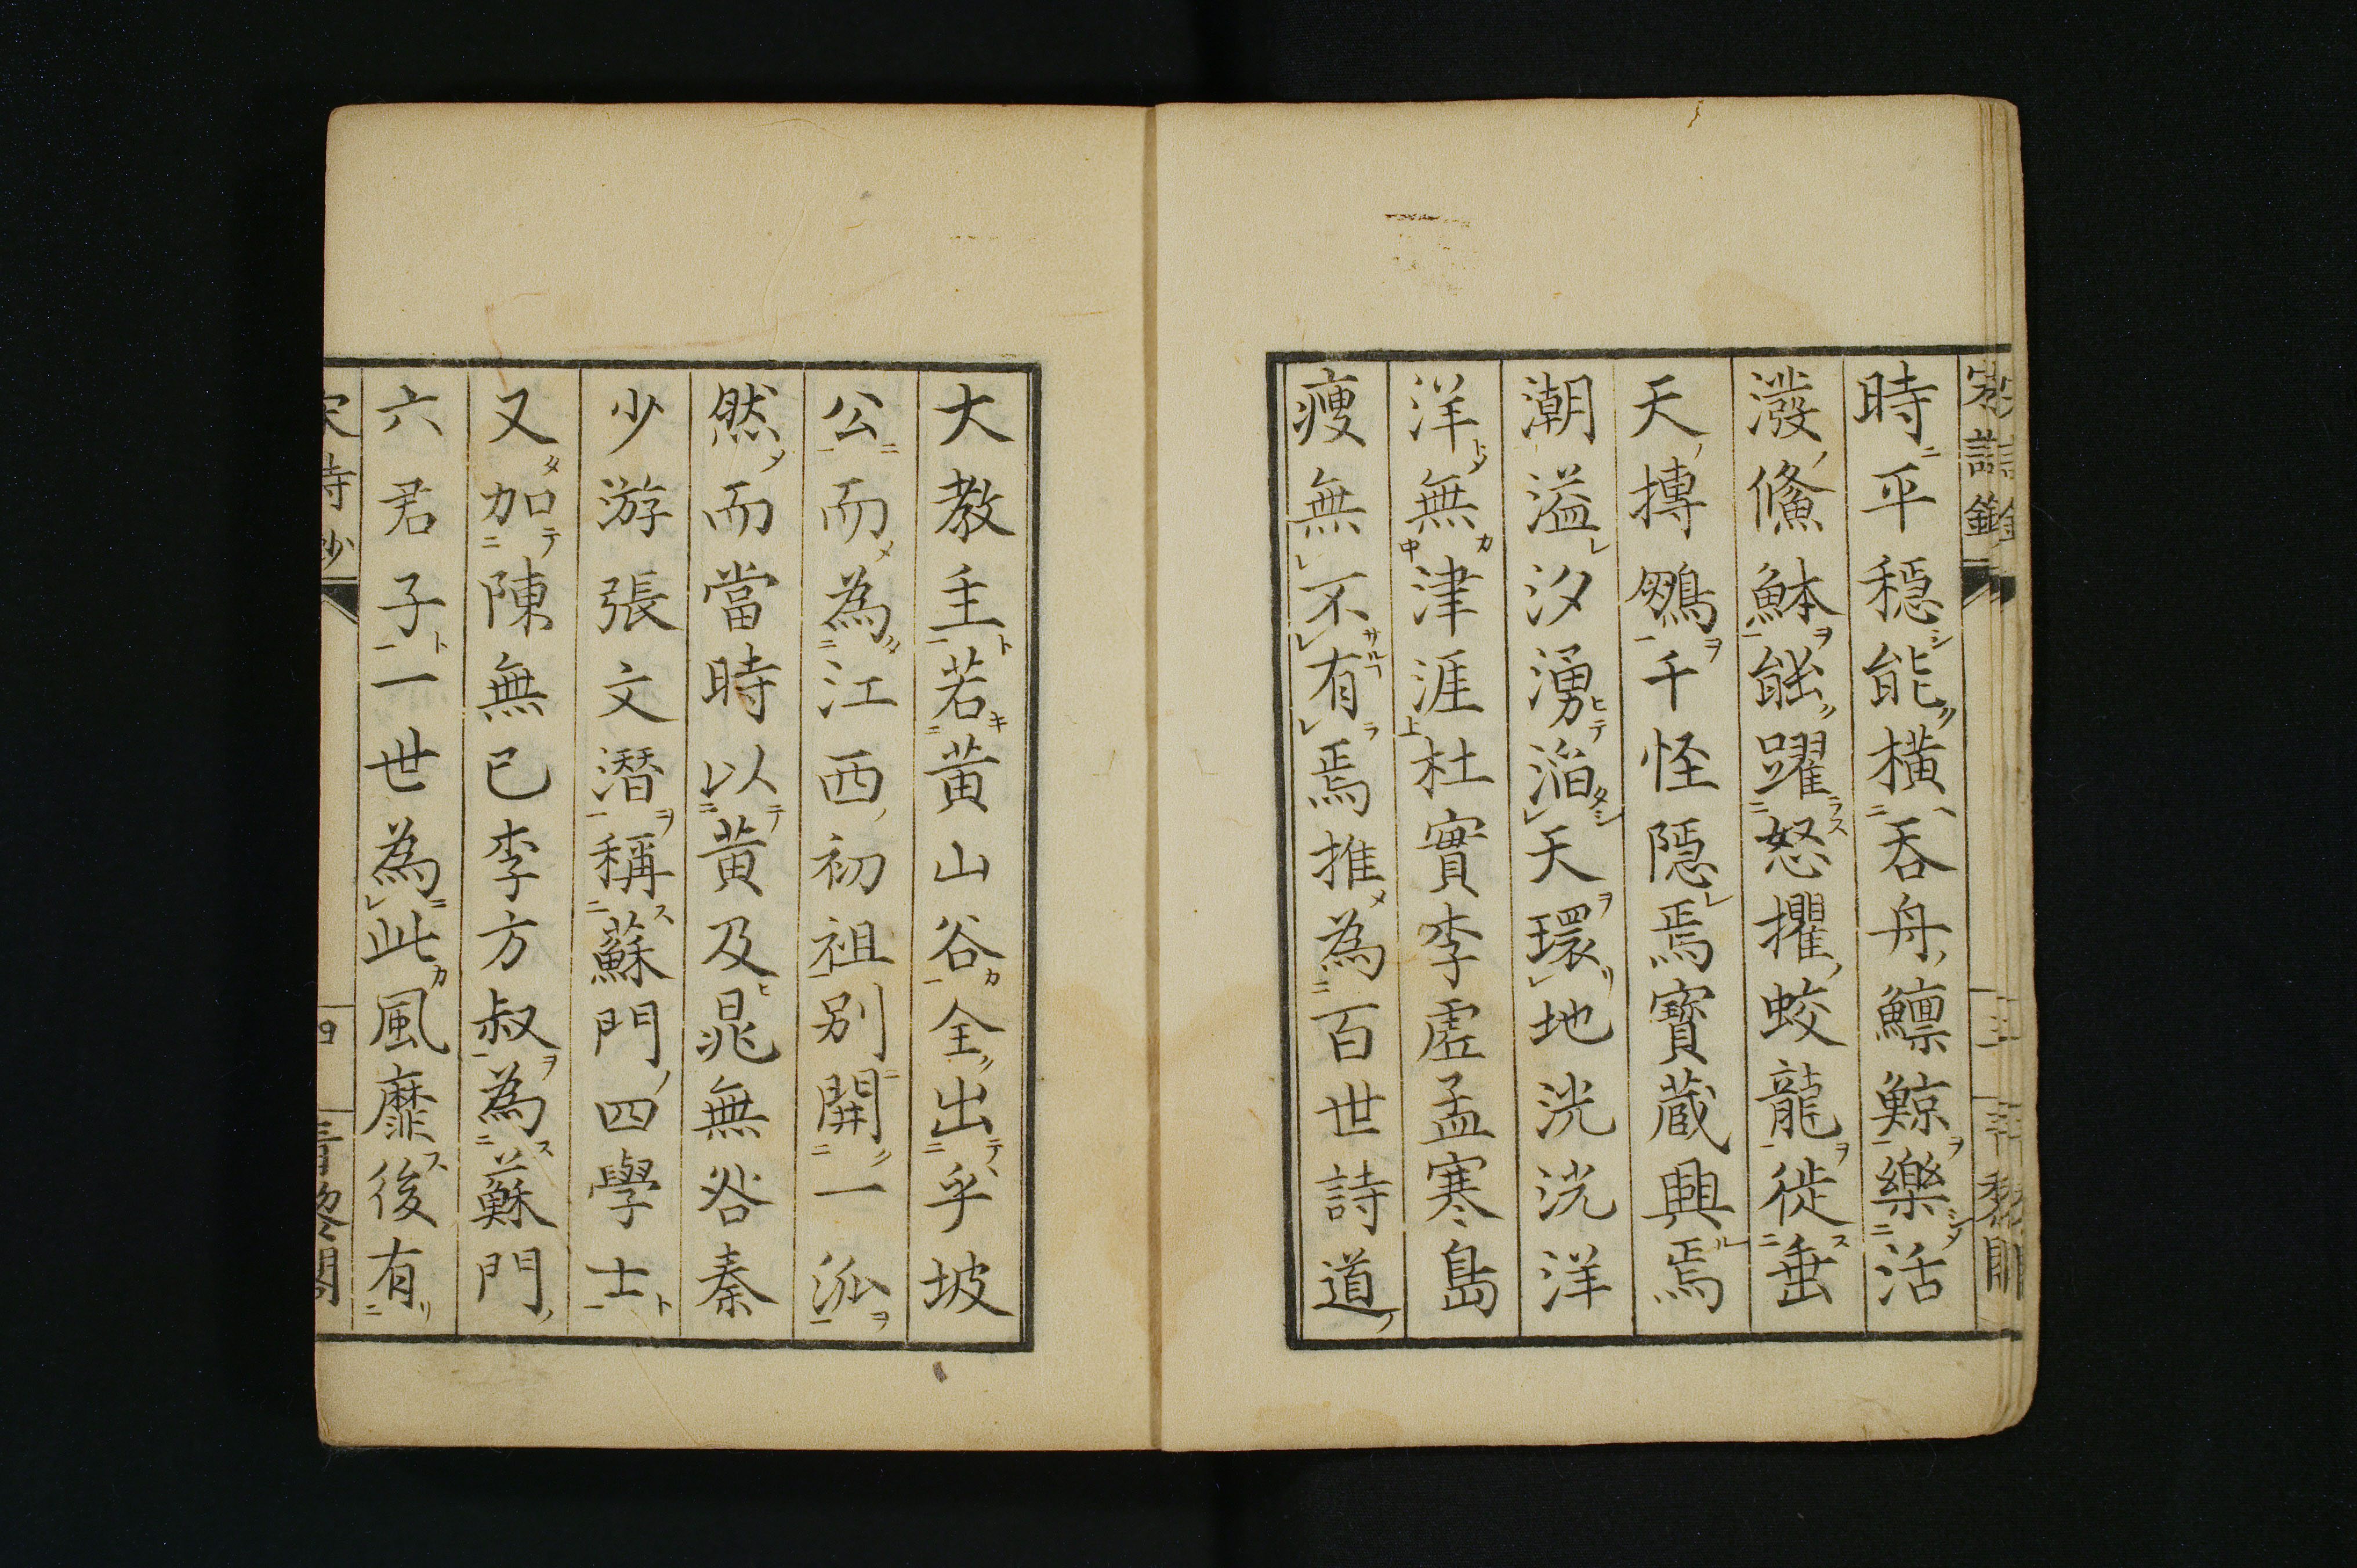 時平穏能橫吞舟鱣鯨樂活
潑鯈鮢能躍怒攫蛟龍徙垂
天摶鷃千怪隱焉寶蔵興焉
潮溢汐湧滔天環地洸洸洋
洋無津涯杜實李虛孟寒島
瘦無不有焉推為百世詩道
大教主若黃山谷全出乎坡
公而為江西初祖別開一派
然而當時以黃及晁無咎秦
少游張文潛稱蘇門四學士
又加陳無已李方叔為蘇門
六君子一世為此風靡後有